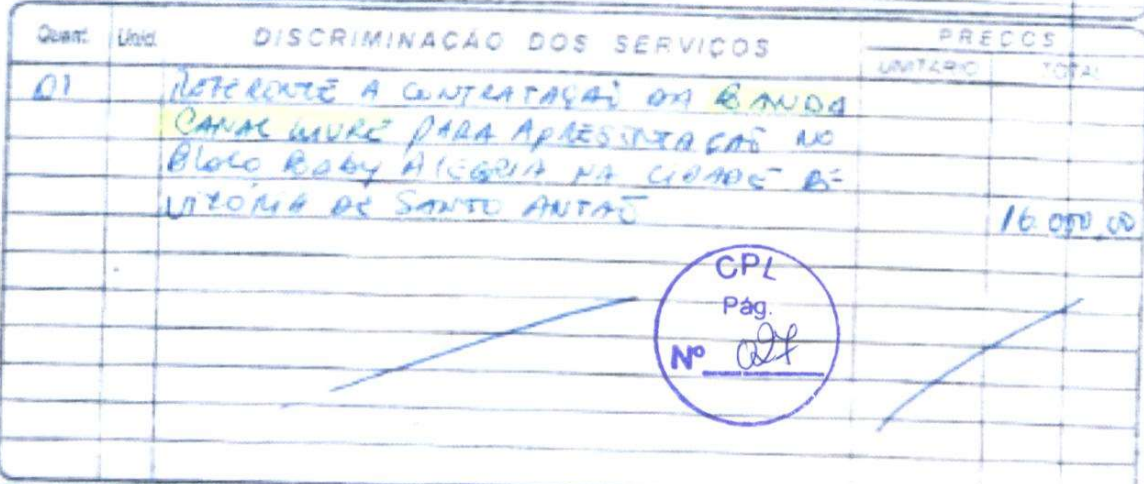 Quant. Unid. DISCRIMINAÇÃO DOS SERVIÇOS PREÇOS
UNITÁRIO TOTAL
01 REFERENTE A CONTRATAÇAÕ DA BANDA
CANAL LIVRE PARA APRESENTAÇAÕ NO
BLOCO BABY ALEGRIA NA CIDADE DE
VITÓRIA DE SANTO ANTAÕ 16.000,00
CPL
Pág.
Nº 027